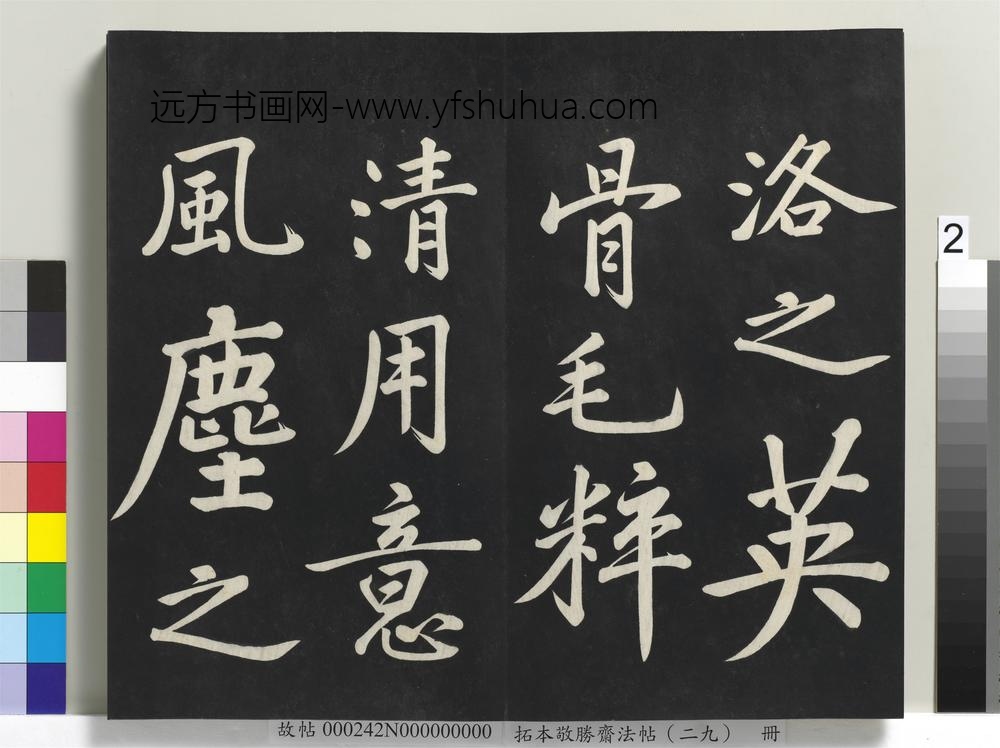 远方书画网-www.yfshuhua.com
洛之英
骨毛粹
清用意
風塵之
2
故帖 000242N000000000 拓本敬勝齋法帖（二九） 冊